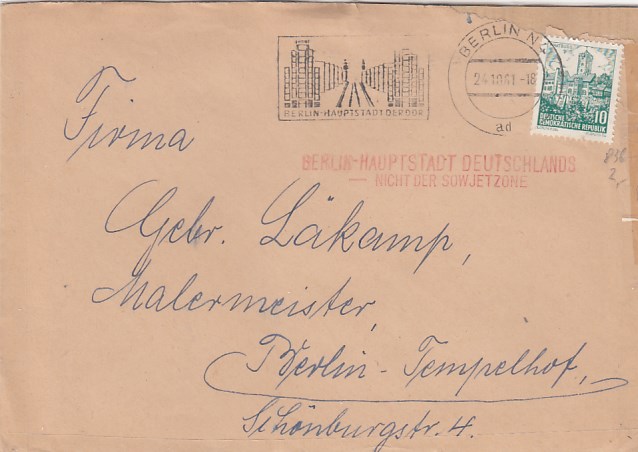 BERLIN-HAUPTSTADT DER DDR
BERLIN N
24.10.61.-18
ad
10
DEUTSCHE
DEMOKRATISCHE REPUBLIK
BERLIN-HAUPTSTADT DEUTSCHLANDS
— NICHT DER SOWJETZONE
Firma
Gebr. Läkamp,
Malermeister,
Berlin-Tempelhof,
Schönburgstr. 4.